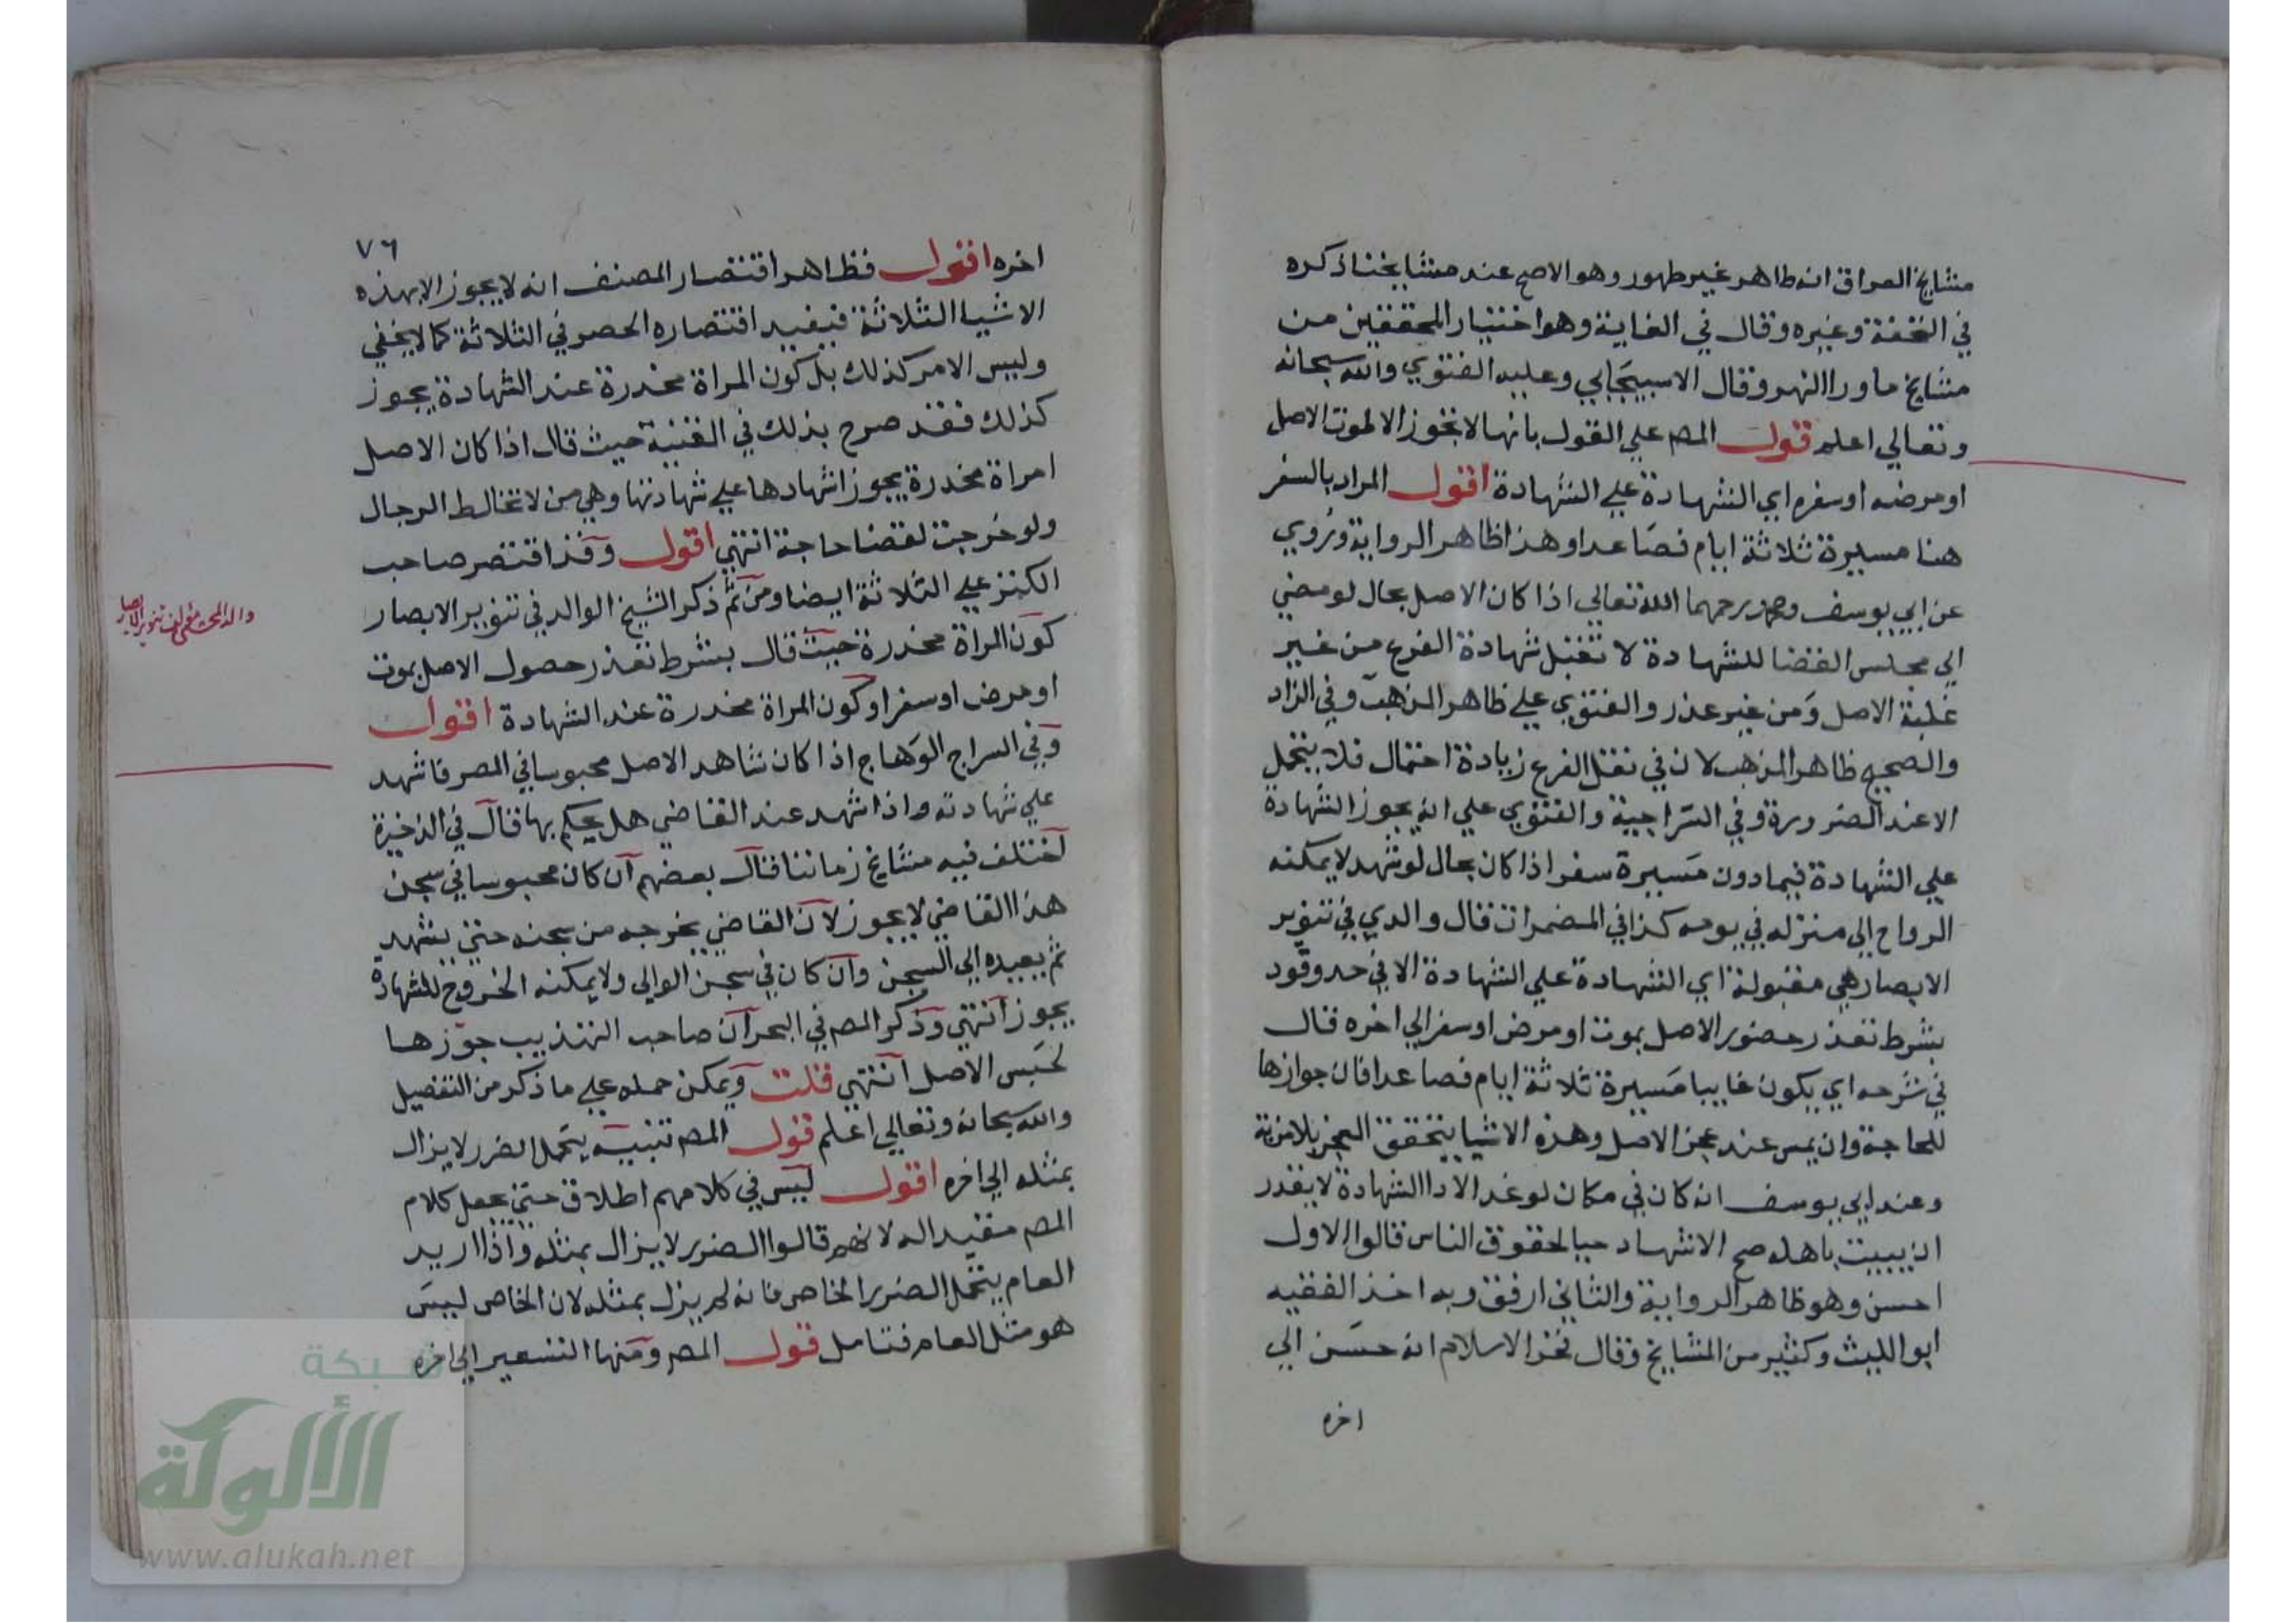 مشايخ العراق انه طاهر غير طهور وهو الاصح عند مشايخنا ذكره
في التحفة وغيره وقال في الغاية وهو اختيار المحققين من
مشايخ ما ورا النهر وقال الاسبيجابي وعليه الفتوي والله سبحانه
وتعالي اعلم قول المص علي القول بانها لا تجوز الا لموت الاصل
او مرضه او سفره اي الشهادة علي الشهادة اقول المراد بالسفر
هنا مسيرة ثلاثة ايام فصاعدا وهذا ظاهر الرواية وروي
عن ابي يوسف ومحمد رحمهما الله تعالي اذا كان الاصل بحال لو مضي
الي مجلس القضا للشهادة لا تقبل شهادة الفرع من غير
غلبة الاصل ومن غير عذر والفتوي علي ظاهر المذهب وفي الزاد
والصحيح ظاهر المذهب لان في نقل الفرع زيادة احتمال فلا يتحمل
الا عند الضرورة وفي السراجية والفتوي علي انه يجوز الشهادة
علي الشهادة فيما دون مسيرة سفر اذا كان بحال لو شهد لا يمكنه
الرواح الي منزله في يومه كذا في المضمرات قال والدي في تنوير
الابصار هي مقبولة اي الشهادة علي الشهادة الا في حد وقود
بشرط تعذر حضور الاصل بموت او مرض او سفر الي اخره قال
في شرحه اي يكون غايبا مسيرة ثلاثة ايام فصاعدا فان جوازها
للحاجة وان يمس عند عجز الاصل وهذه الاشيا يتحقق العجز بلا مرية
وعند ابي يوسف انه كان في مكان لو غدا لادا الشهادة لا يقدر
ان يبيت باهله صح الاشهاد حيا لحقوق الناس قالوا الاول
احسن وهو ظاهر الرواية والثاني ارفق وبه اخذ الفقيه
ابو الليث وكثير من المشايخ وقال فخر الاسلام انه حسن الي
اخره
٧٦
اخره اقول فظاهر اقتصار المصنف انه لا يجوز الا بهذه
الاشيا الثلاثة فيفيد اقتصاره الحصر في الثلاثة كما لا يخفي
وليس الامر كذلك بل كون المراة مخدرة عند الشهادة يجوز
كذلك فقد صرح بذلك في القنية حيث قال اذا كان الاصل
امراة مخدرة يجوز اشهادها علي شهادتها وهي من لا تخالط الرجال
ولو خرجت لقضا حاجة انتهي اقول وقد اقتصر صاحب
الكنز علي الثلاثة ايضا ومن ثم ذكر الشيخ الوالد في تنوير الابصار
كون المراة مخدرة حيث قال بشرط تعذر حصول الاصل بموت
او مرض او سفر او كون المراة مخدرة عند الشهادة اقول
وفي السراج الوهاج اذا كان شاهد الاصل محبوسا في المصر فاشهد
علي شهادته واذا شهد عند القاضي هل يحكم بها قال في الذخيرة
اختلف فيه مشايخ زماننا فقال بعضهم ان كان محبوسا في سجن
هذا القاضي لا يجوز لان القاضي يخرجه من سجنه حتي يشهد
ثم يعيده الي السجن وان كان في سجن الوالي ولا يمكنه الخروج للشهادة
يجوز انتهي وذكر المص في البحر ان صاحب التهذيب جوزها
لحبس الاصل انتهي قلت ويمكن حمله علي ما ذكر من التفصيل
والله سبحانه وتعالي اعلم قول المص تنبيه يتحمل الضرر لا يزال
بمثله الي اخره اقول ليس في كلامهم اطلاق حتي يجعل كلام
المص مقيدا له لانهم قالوا الضرر لا يزال بمثله واذا اريد
العام يتحمل الضرر الخاص فانه لم يزل بمثله لان الخاص ليس
هو مثل العام فتامل قول المص ومنها التسعير الي اخره
والد المحشي مؤلف تنوير الابصار
شبكة
الألوكة
www.alukah.net